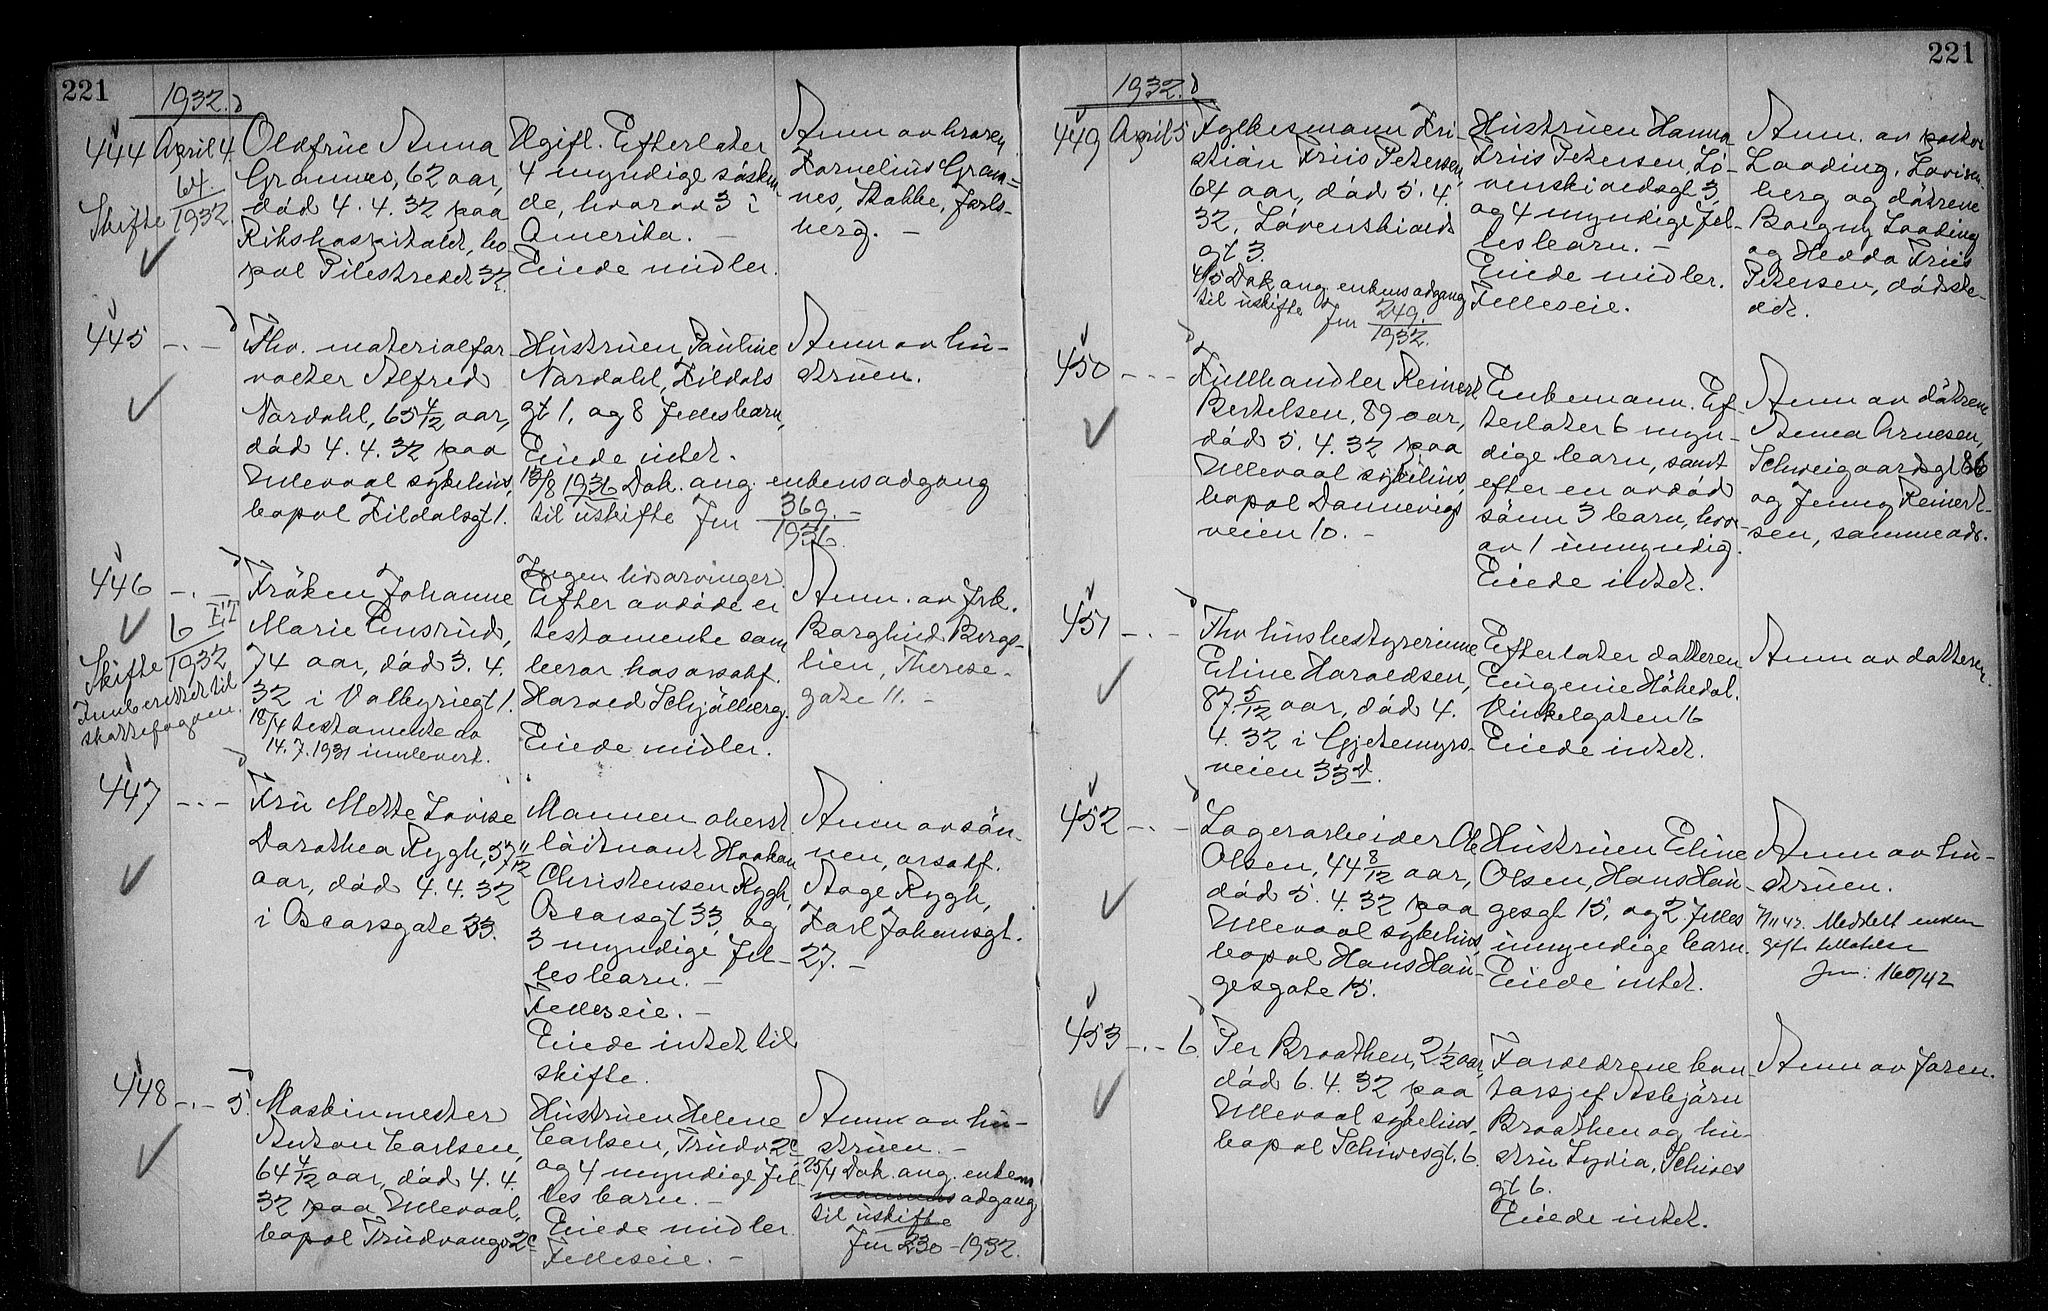 221
1932.
444 April 4.
Skifte 64./1932
Oldfrue Anna
Gramnes, 62 aar,
död 4. 4. 32 paa
Rikshospitalet, bo
pæl Pilestredet 32.
Ugift. Efterlater
4 myndige sösken
de, hvorav 3 i
Amerika. –
Eiede midler.
Anm av broren
Kornelius Gram=
nes, Stokke, Jarls-
berg. –
445 – . –
Fhv. materialfor
valter Alfred
Nordahl, 65 4/12 aar,
död 4. 4. 32 paa
Ullevaal sykehus,
bopæl Fildalsgt 1.
Hustruen Pauline
Nordahl, Fildals
gt 1, og 8 fellesbarn,
Eiede intet.
13/8 1936 Dok. ang. enkens adgang
til uskifte Jnr 369./1936. –
Anm av hu-
struen.
446 – . –
Skifte 6 III/1932
Innberettet til
skattefogden.
Fröken Johanne
Marie Ensrud,
74 aar, död 3. 4.
32 i Valkyriegt 1.
18/4 testamente av
14. 7. 1931 innlevert.
Ingen livsarvinger.
Efter avdöde er
testamente som
beror hos o.r.sakf.
Harald Schjölberg.
Eiede midler.
Anm. av frk.
Borghild Bergs-
lien, Therese-
gate 11. –
447 – . –
Fru Mette Lovise
Dorothea Rygh, 57 11/12
aar, död 4. 4. 32
i Oscarsgate 33.
Mannen oberst
löitnant Haakon
Christensen Rygh,
Oscarsgt 33, og
3 myndige fel-
lesbarn. –
Felleseie. –
Eiede intet til
skifte.
Anm av sön-
nen, o.r.sakf.
Aage Rygh,
Karl Johansgt.
27. –
448 – . – 5.
Maskinmester
Anton Carlsen,
64 4/12 aar, död 4. 4.
32 paa Ullevaal,
bopæl Trudvangv 2c
Hustruen Helene
Carlsen, Trudv 2c
og 4 myndige fel-
les barn. –
Eiede midler
Felleseie. –
Anm av hu-
struen. –
25/4 Dok. ang. enkens
adgang
til uskifte
Jnr 230 – 1932.
221
1932.
449 April 5
Fylkesmann Kri-
stian Friis Petersen,
64 aar, död 5. 4.
32, Lövenskiolds
gt 3.
4/5 Dok ang. enkens adgang
til uskifte Jnr 249./1932.
Hustruen Hanna
Friis Petersen, Lö-
venskioldsgt 3,
og 4 myndige fel-
les barn. –
Eiede midler.
Felleseie.
Anm. av pastor
Looding, Lovisen-
berg og dötrene
Borgny Looding
og Hedda Friis
Petersen, dödste-
det.
450 – . –
Fellhandler Reinert
Bertelsen, 89 aar,
död 5. 4. 32 paa
Ullevaal sykehus,
bopæl Dannevigs
veien 10. –
Enkemann. Ef-
terlater 6 myn-
dige barn, samt
efter en avdöd
sönn 3 barn, hvor-
av 1 umyndig.
Eiede intet.
Anm av dötrene
Anna Arnesen,
Schweigaardsgt 86
og Jenny Reinert-
sen, samme adr.
451 – . –
Fhv husbestyrerinne
Eline Haraldsen,
87 5/12 aar, död 4.
4. 32 i Gjetemyrs-
veien 33d.
Efterlater datteren
Eugenie Hökedal.
Vinkelgaten 16
Eiede intet.
Anm av datteren.
452 – . –
Lagerarbeider Ole
Olsen, 44 8/12 aar,
död 5. 4. 32 paa
Ullevaal sykehus,
bopæl Hans Hau-
gesgate 15.
Hustruen Eline
Olsen, Hans Hau-
gesgt 15, og 2 felles
umyndige barn.
Eiede intet.
Anm av hu-
struen.
7/11 42. Meddelt enken
gifte tillatelse
Jnr: 160/42
453 – . – 6.
Per Braathen, 2 1/2 aar,
död 6. 4. 32 paa
Ullevaal sykehus,
bopæl Schivesgt. 6.
Foreldrene kon
torsjef Asbjörn
Braathen og hu-
stru Lydia, Schives
gt 6.
Eiede intet.
Anm av faren.